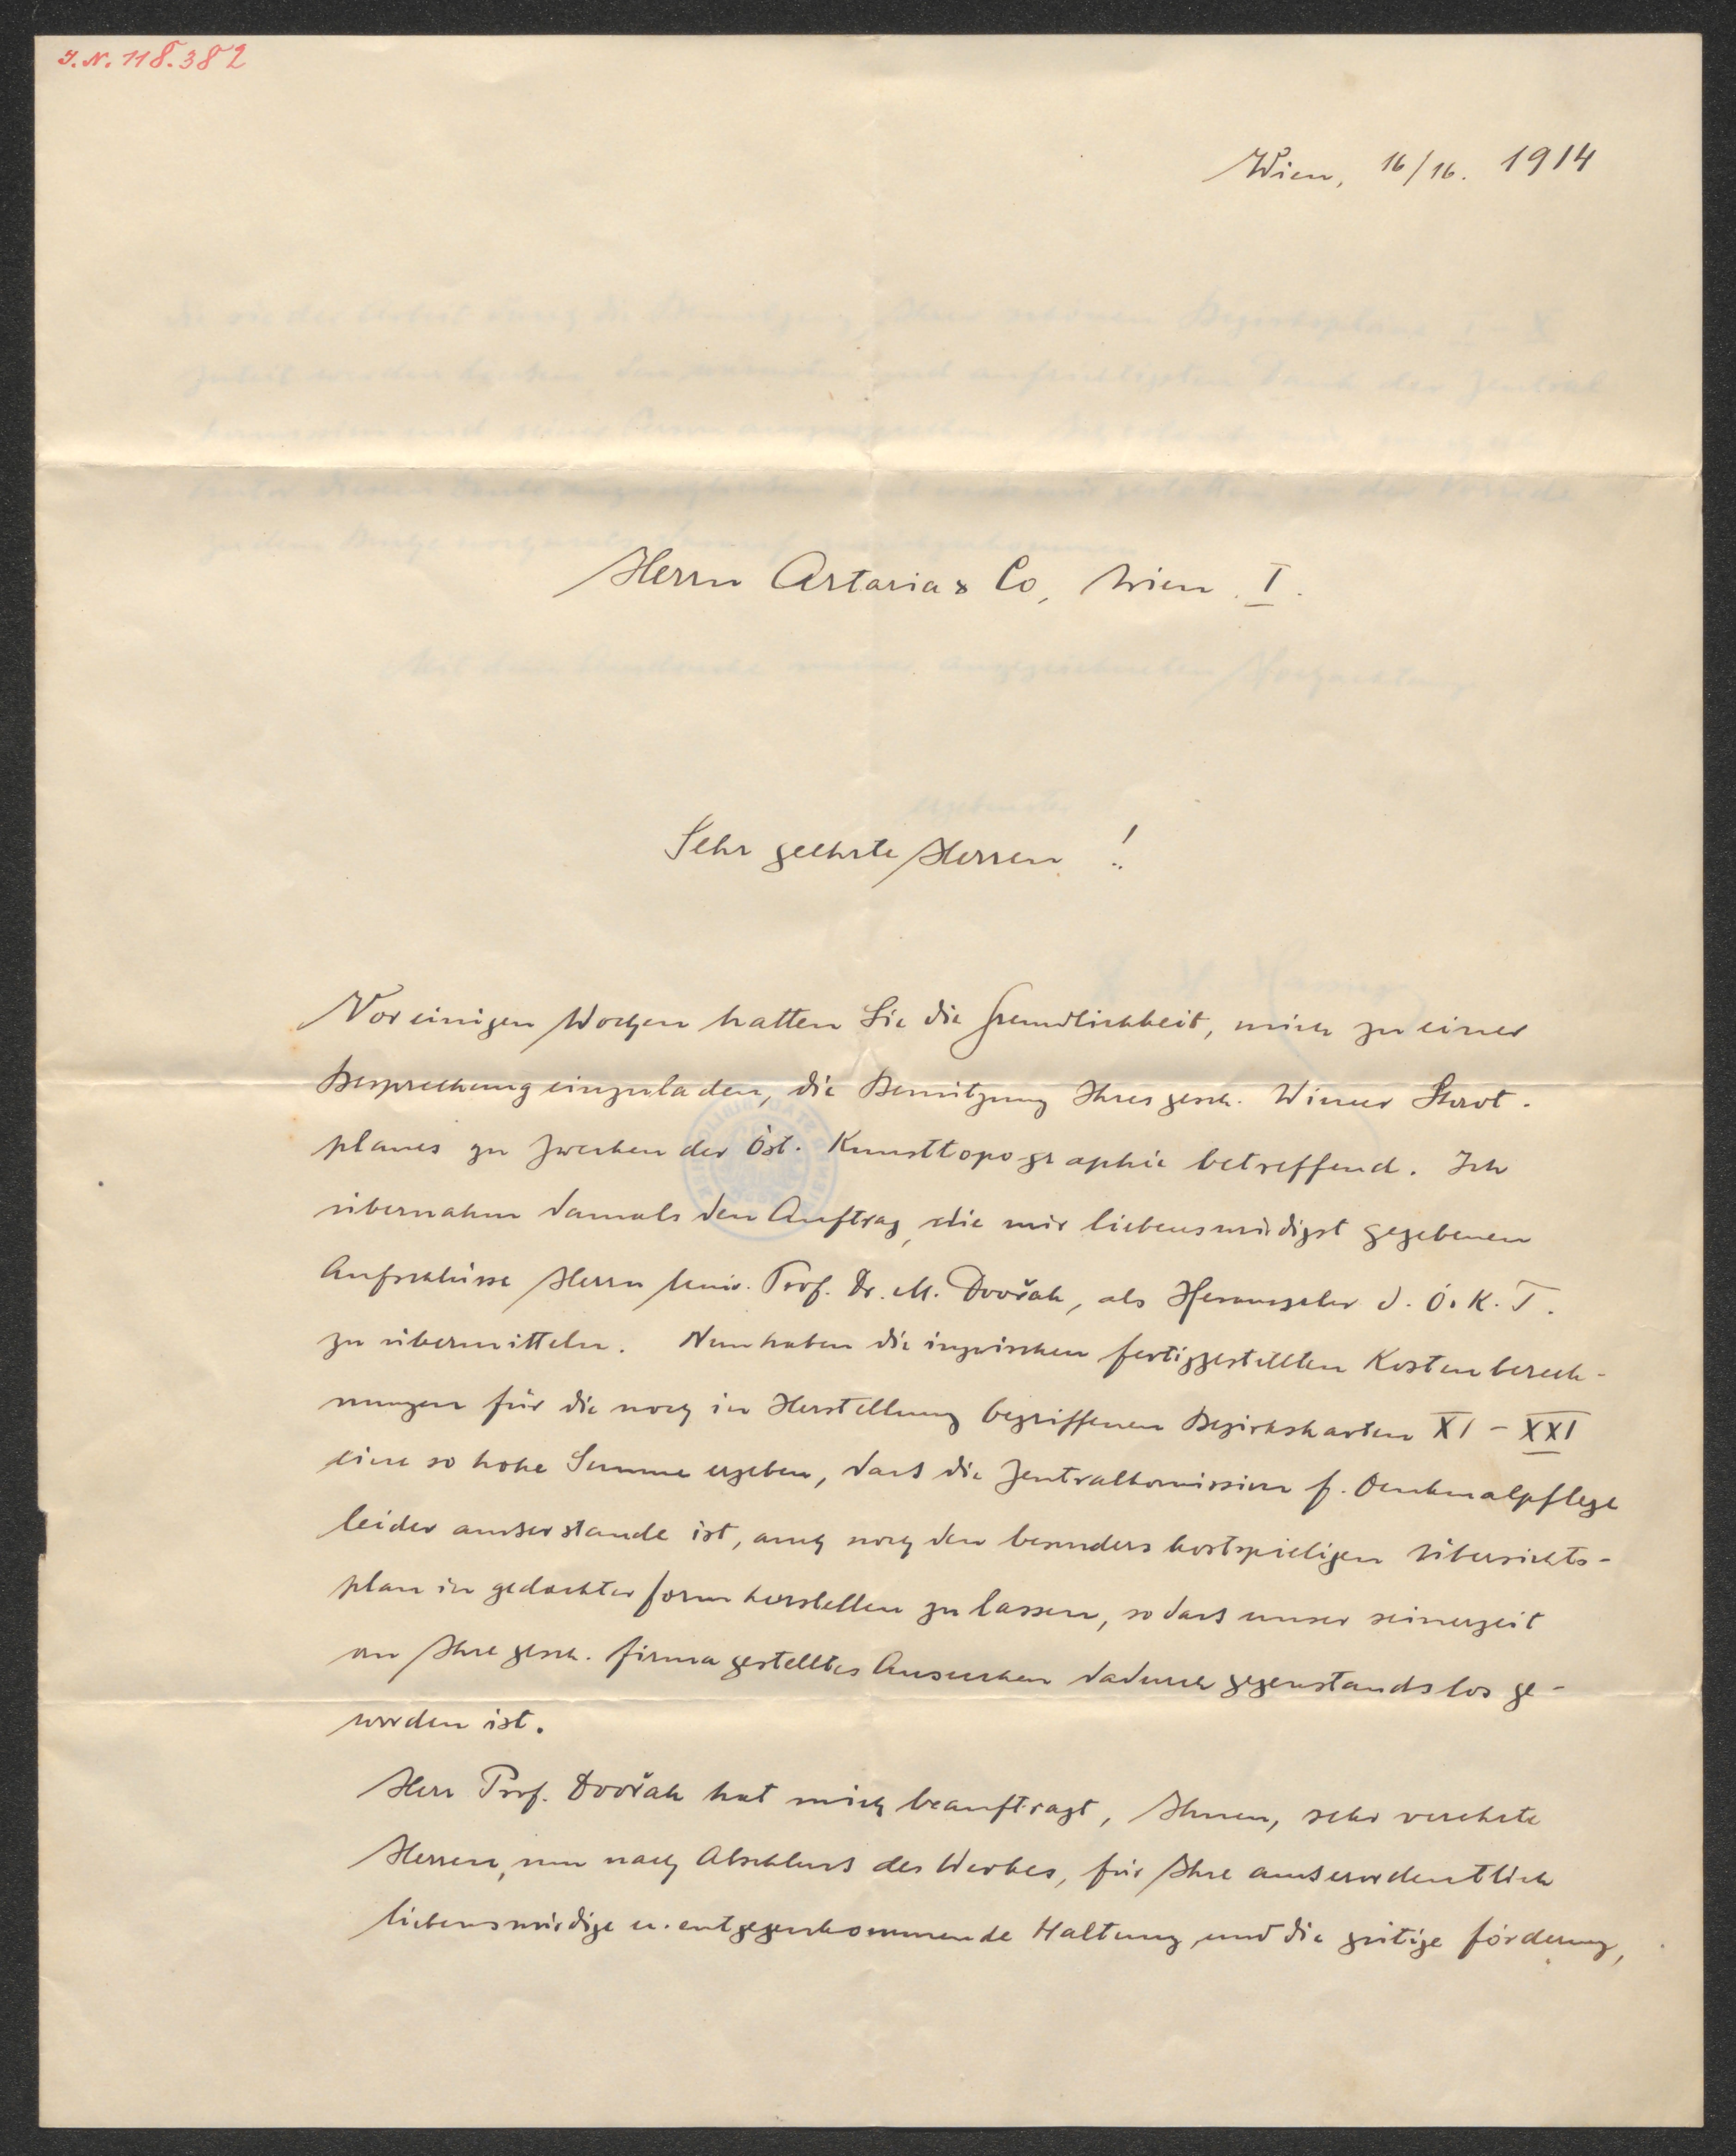 I. N. 118.382
Wien, 16/16. 1914
Herrn Artaria & Co, Wien. I.
Sehr geehrte Herren!
Vor einigen Wochen hatten Sie die Freundlichkeit, mich zu einer
Besprechung einzuladen, die Benützung Ihres gesch. Wiener Stadt-
planes zu Zwecken der Öst. Kunsttopographie betreffend. Ich
übernahm damals den Auftrag, die mir liebenswürdigst gegebenen
Aufschlüsse Herrn Univ. Prof. Dr. M. Dvořak, als Herausgeber d. Ö. K. T.
zu übermitteln. Nun haben die inzwischen fertiggestellten Kostenberech-
nungen für die noch in Herstellung begriffenen Bezirkskarten XI – XXI
eine so hohe Summe ergeben, dass die Zentralkomission f. Denkmalpflege
leider ausserstande ist, auch noch den besonders kostspieligen Übersichts-
plan in gedachter Form herstellen zu lassen, so dass unser seinerzeit
an Ihre gesch. Firma gestelltes Ansuchen dadurch gegenstandslos ge-
worden ist.
Herr Prof. Dvořak hat mich beauftragt, Ihnen, sehr verehrte
Herren, nun nach Abschluss des Werkes, für Ihre ausserordentlich
liebenswürdige u. entgegenkommende Haltung und die gütige Förderung,